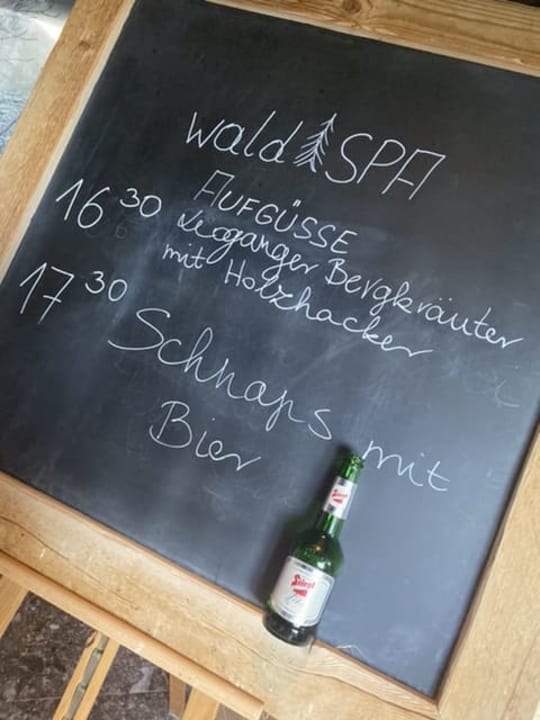 wald SPA
AUFGÜSSE
16 30 Leoganger Bergkräuter
mit Holzhacker
17 30 Schnaps mit
Bier
Stiegl